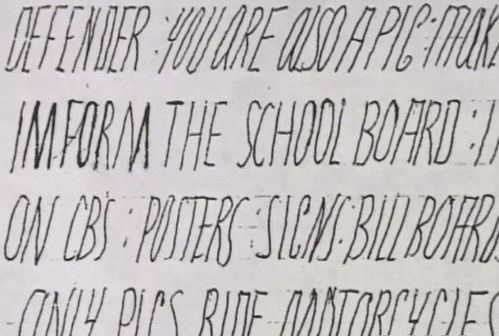 DEFENDER : YOU ARE ALSO A PIG : MAKE
IMFORM THE SCHOOL BOARD :
ON CBS : POSTERS : SIGNS : BILLBOARD
ONLY PIGS RIDE